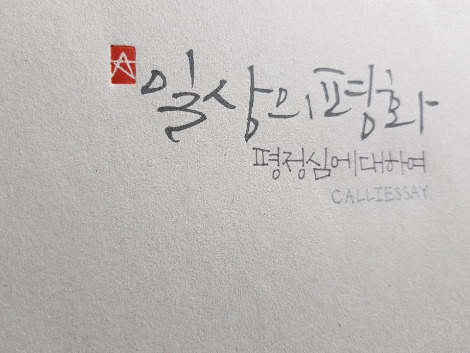 일상의 평화
평정심에대하여
CALLIESSAY